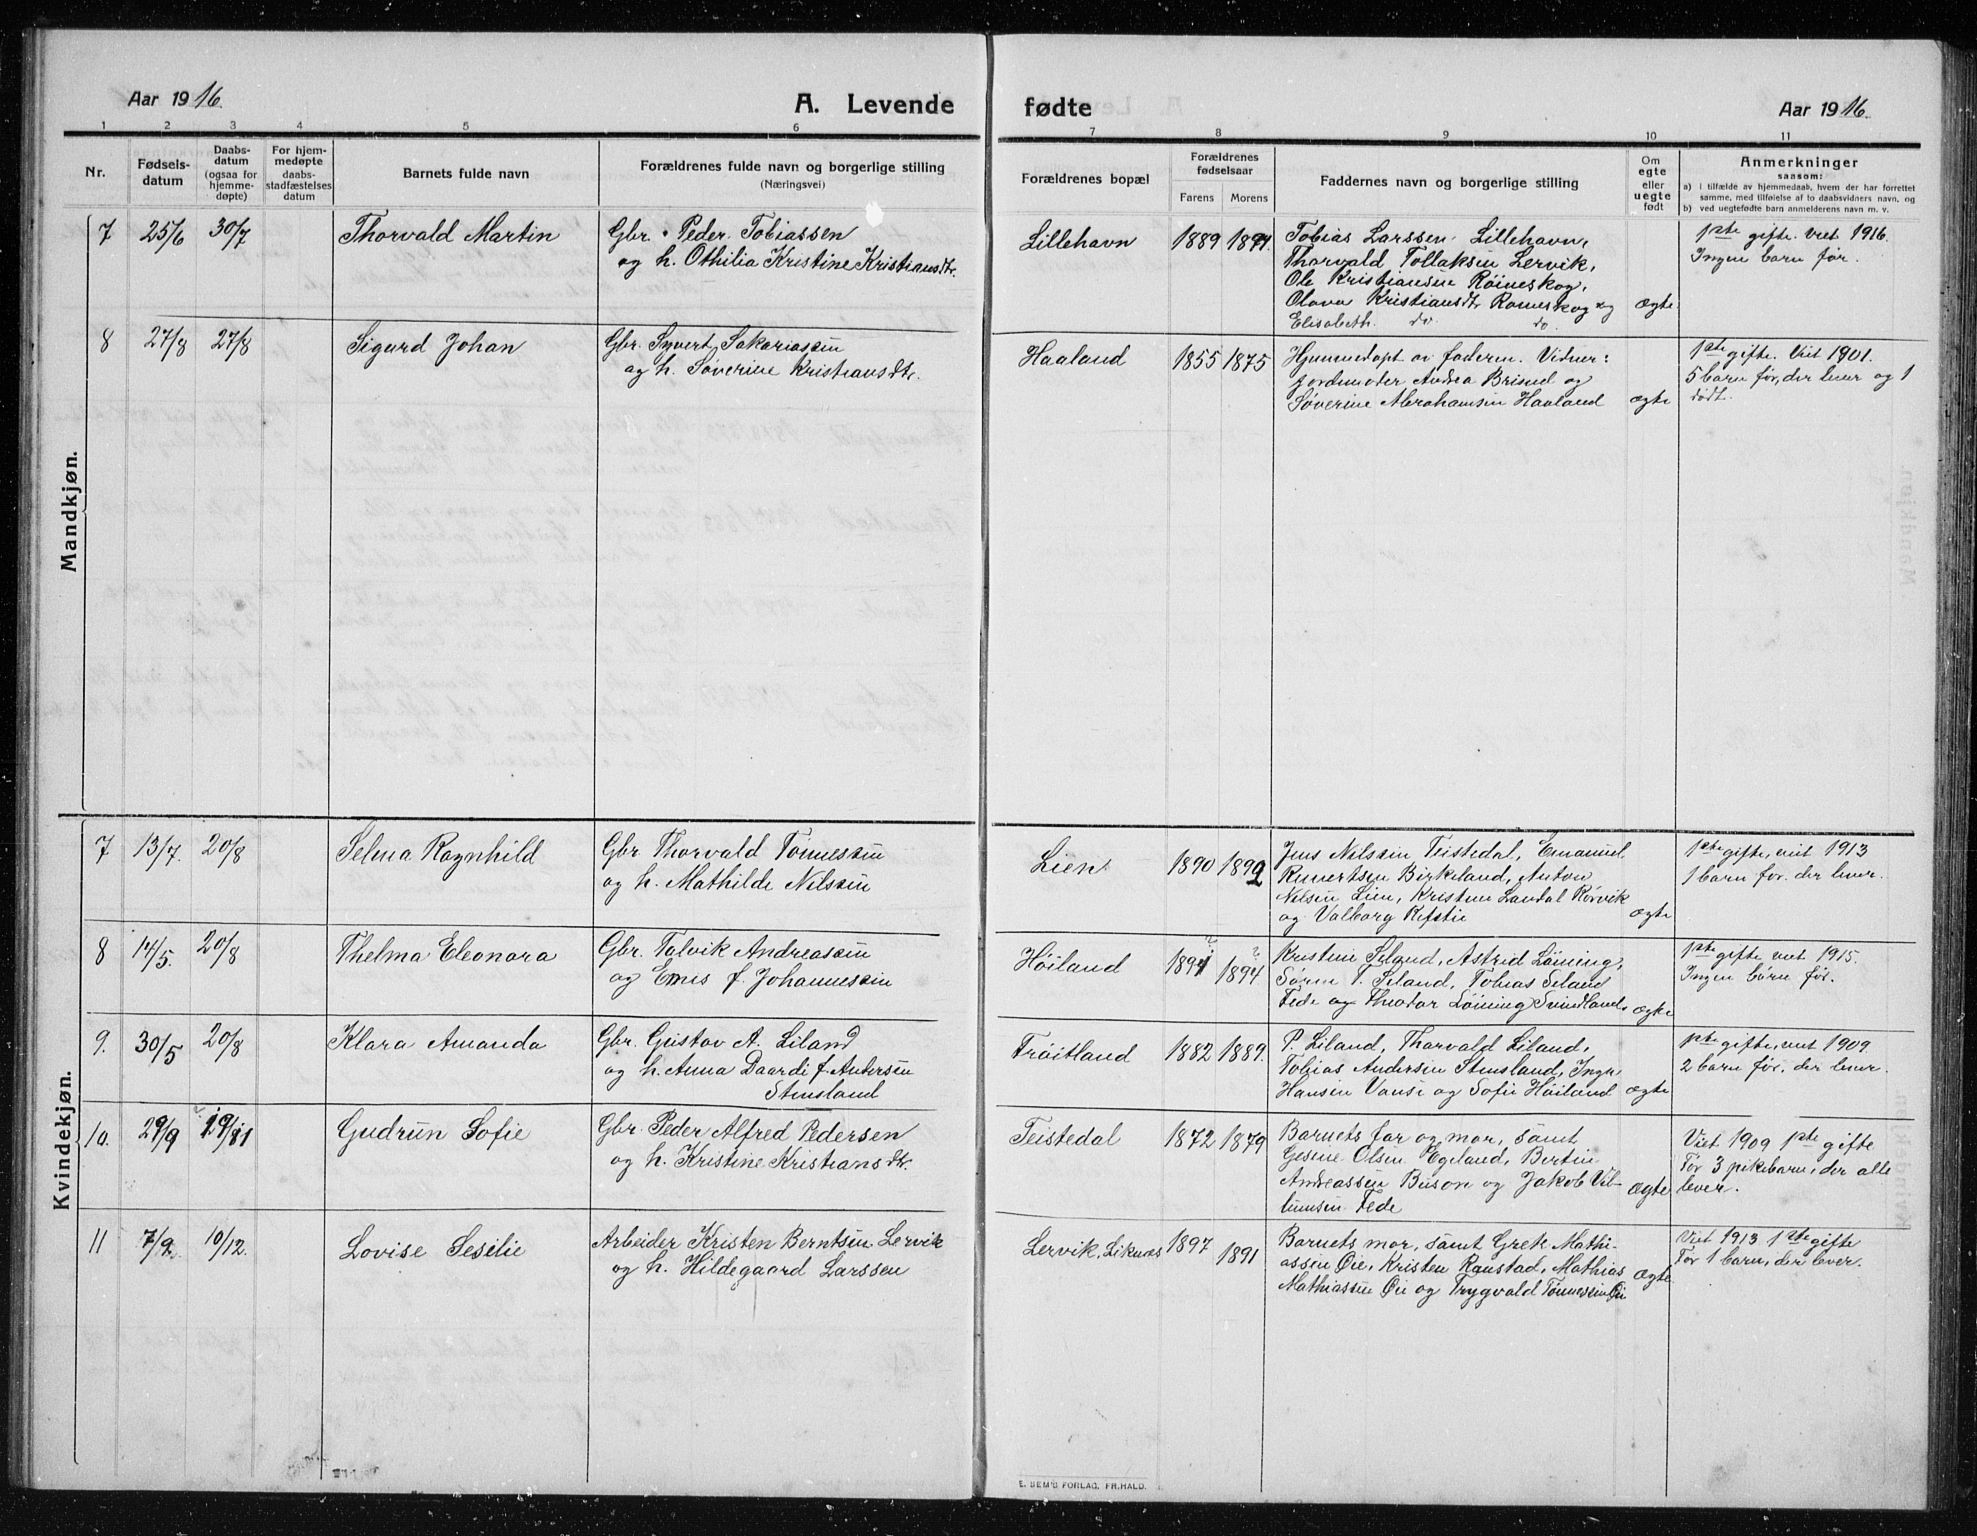 Aar 1916.
A. Levende
fødte
Aar 1916.
1 2 3 4 5 6 7 8 9 10 11
Nr.
Fødsels-
datum
Daabs-
datum
(ogsaa for
hjemme-
døpte)
For hjem-
medøpte
daabs-
stadfæstelses
datum
Barnets fulde navn
Forældrenes fulde navn og borgerlige stilling
(Næringsvei)
Forældrenes bopæl
Forældrenes
fødselsaar
Farens Morens
Faddernes navn og borgerlige stilling
Om
egte
eller
uegte
født
Anmerkninger
saasom:
a) i tilfælde av hjemmedaab, hvem der har forrettet
samme, med tilføielse af to daabsvidners navn, og
b) ved uegtefødte barn anmelderens navn m. v.
Mandkjøn.
7 25/6 30/7 Thorvald Martin
Gbr. Peder Tobiassen
og h. Othilia Kristine Kristiansdtr.
Lillehavn 1889
Tobias Larssen Lillehavn,
Thorvald Tollaksen Lervik,
Ole Kristiansen Röineskog,
Olava Kristiansdtr. Romeskog og
Elisabeth do do
ægte
1ste gifte. Viet 1916.
Ingen barn før.
8 27/8 27/8 Sigurd Johan
Gbr. Syvert Sakariassen
og h. Søverine Kristiansdtr.
Haaland 1855 1875
Hjemmedøpt av faderen. Vidner:
jordmoder Andrea Brisnel og
Søverine Abrahamsen Haaland
ægte
1ste gifte. Viet 1901.
5 barn før, der lever og 1
dødt.
Kvindekjøn.
7 13/7. 20/8 Selma Ragnhild
Gbr. Thorvald Tønnessen
og h. Mathilde Nilssen
Lien 1890 1892
Jens Nilssen Teistedal, Emanuel
Reinertsen Birkeland, Anton
Nilsen Lien, Kristine Landal Rørvik
og Valborg Refstie
ægte
1ste gifte, viet 1913
1 barn før, der lever.
8 14/5. 20/8 Thelma Eleonora
Gbr. Talvik Andreassen
og Emis f. Johannessen
Höiland 1894
Kristine Seland, Astrid Löining,
Søren T. Seland, Tobias Seland
Fede og Theodor Löining Svindland,
ægte
1ste gifte viet 1915.
Ingen børn før.
9. 30/5 20/8 Klara Amanda
Gbr. Gustav A. Liland
og h. Anna Daardi f. Andersen
Stensland
Tröitland 1882 1889.
P. Liland, Thorvald Liland,
Tobias Andersen Stensland, Inga
Hansen Vanse og Sofie Höiland
ægte
1ste gifte, viet 1909
2 barn før, der lever.
10. 29/9 Gudrun Sofie
Gbr. Peder Alfred Pedersen
og h. Kristine Kristiansdtr.
Teistedal 1872 1879
Barnets far og mor, samt
Gesine Olsen Egeland, Bertin
Andreassen Buson og Jakob Vil-
lumsen Fede
ægte
Viet 1909 1ste gifte
Før 3 pikebarn, der alle
lever.
11 7/9. 10/12. Lovise Sesilie
Arbeider Kristen Berntsen Lervik
og h. Hildegaard Larssen
Lervik, Liknes 1897 1891
Barnets mor, samt Grek Mathi-
assen Øie, Kristen Ranstad, Mathias
Mathiassen Øie og Trygvald Tønnessen Øie
ægte
Viet 1913 1ste gifte
Før 1 barn, der lever.
E. SEM'S FORLAG, FR.HALD.